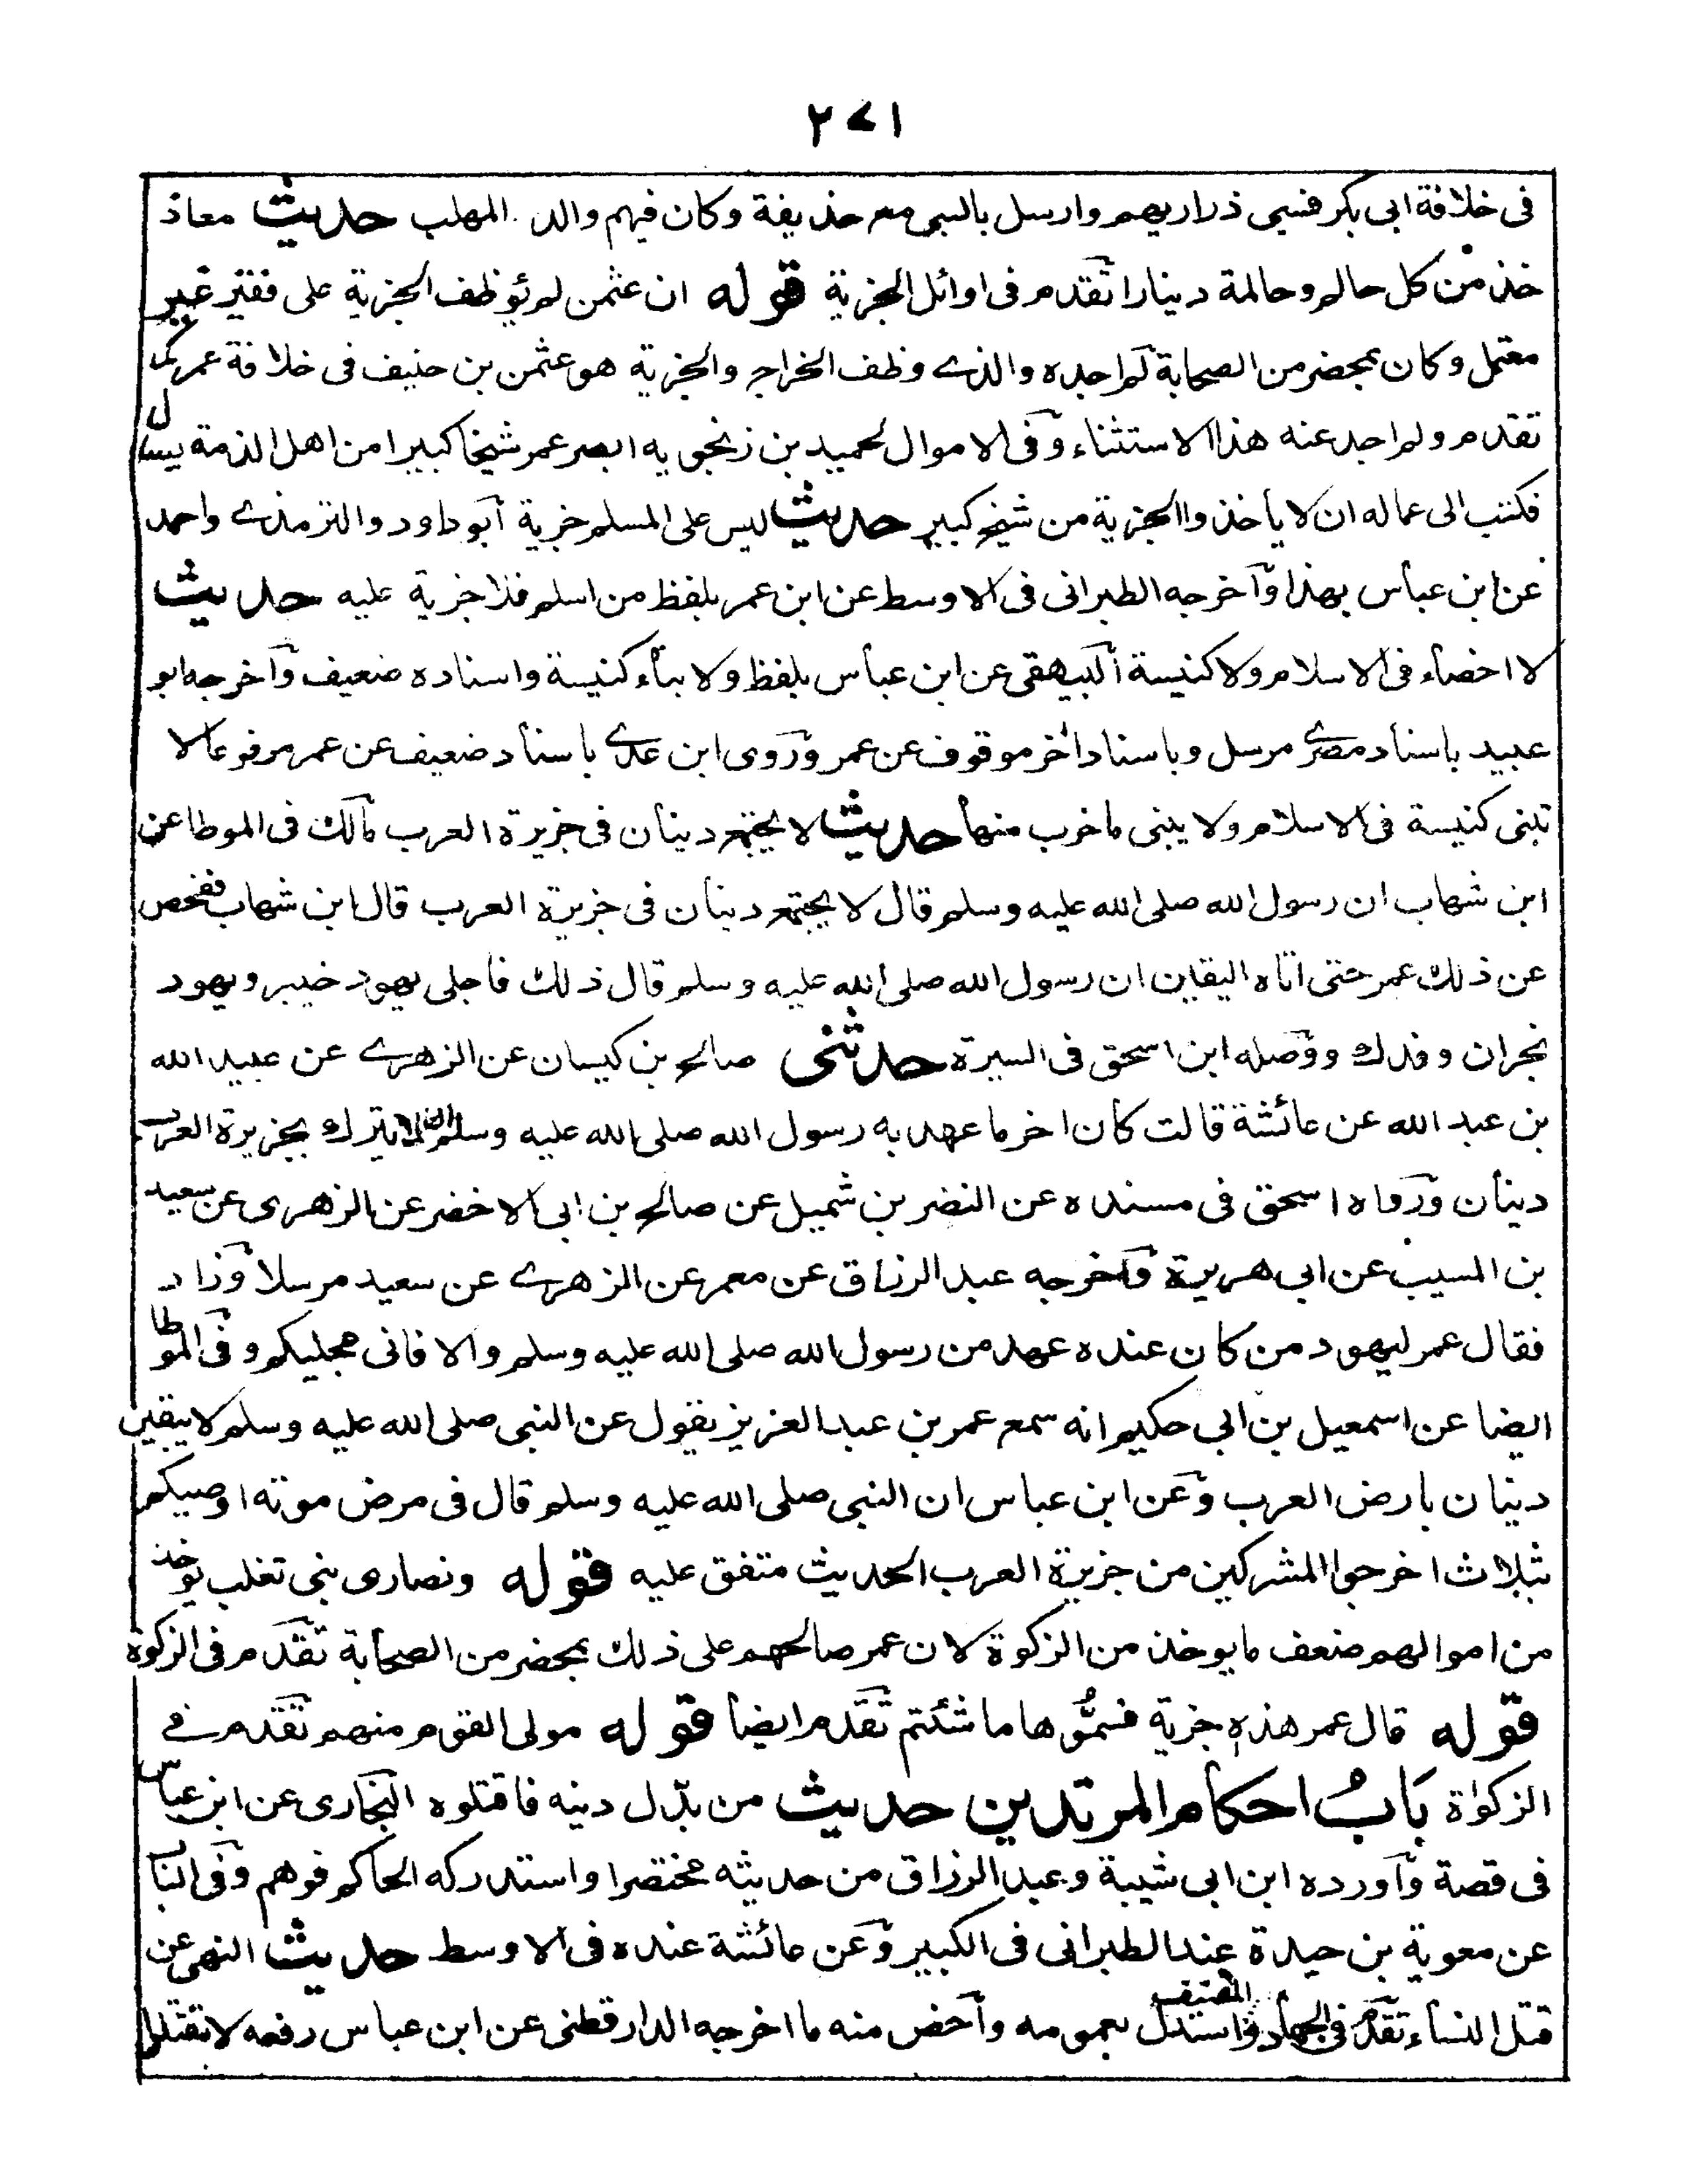 ٢٧١
فى خلافة ابى بكر فسبى ذراريهم وارسل بالسبى مع حذيفة وكان فيهم والد المهلب حديث معاذ
خذ من كل حالم وحالمة دينارا تقدم فى اوائل الجزية قوله ان عثمن لم يوظف الجزية على فقير غير
معتمل وكان بمحضر من الصحابة لم اجده والذے وظف الخراج والجزية هو عثمن بن حنيف فى خلافة عمر كما
تقدم ولم اجد عنه هذا الاستثناء وفى الاموال لحميد بن زنجويه ابصر عمر شيخا كبيرا من اهل الذمة يسأل
فكتب الى عماله ان لا يأخذوا الجزية من شيخ كبير حديث ليس على المسلم جزية أبو داود والترمذے واحمد
عن ابن عباس بهذا وآخرجه الطبرانى فى الاوسط عن ابن عمر بلفظ من اسلم فلا جزية عليه حديث
لا اخصاء فى الاسلام ولا كنيسة ألبيهقى عن ابن عباس بلفظ ولا بناء كنيسة واسناده ضعيف وآخرجه ابو
عبيد باسناد مصرے مرسل وباسناد اخر موقوف عن عمر وروى ابن عدے باسناد ضعيف عن عمر مرفوعا لا
تبنى كنيسة فى الاسلام ولا يبنى ما خرب منها حديث لا يجتمع دينان فى جزيرة العرب مالك فى الموطا عن
ابن شهاب ان رسول الله صلى الله عليه وسلم قال لا يجتمع دينان فى جزيرة العرب قال ابن شهاب ففحص
عن ذلك عمر حتى اتاه اليقين ان رسول الله صلى الله عليه وسلم قال ذلك فاجلى يهود خيبر ويهود
نجران وفدك ووصله ابن اسحق فى السيرة حدثنى صالح بن كيسان عن الزهرے عن عبيد الله
بن عبد الله عن عائشة قالت كان اخر ما عهد به رسول الله صلى الله عليه وسلم ان لا يترك بجزيرة العرب
دينان ورواه اسحق فى مسنده عن النضر بن شميل عن صالح بن ابى الاخضر عن الزهرى عن سعيد
بن المسيب عن ابى هريرة وآخرجه عبد الرزاق عن معمر عن الزهرے عن سعيد مرسلا وزاد
فقال عمر ليهود من كان عنده عهد من رسول الله صلى الله عليه وسلم والا فانى مجليكم وفى الموطا
ايضا عن اسمعيل بن ابى حكيم انه سمع عمر بن عبد العزيز يقول عن النبى صلى الله عليه وسلم لا يبقين
دينان بارض العرب وعن ابن عباس ان النبى صلى الله عليه وسلم قال فى مرض موته اوصيكم
بثلاث اخرجوا المشركين من جزيرة العرب الحديث متفق عليه قوله ونصارى بنى تغلب يوخذ
من اموالهم ضعف ما يوخذ من الزكوة لان عمر صالحهم على ذلك بمحضر من الصحابة تقدم فى الزكوة
قوله قال عمر هذه جزية فسمُّوها ما شئتم تقدم ايضا قوله مولى القوم منهم تقدم فے
الزكوٰة بَابُ احكام المرتدين حديث من بدّل دينه فاقتلوه البخارى عن ابن عباس
فى قصة وآورده ابن ابى شيبة وعبد الرزاق من حديثه مختصرا واستدركه الحاكم فوهم وفى الباب
عن معوية بن حيدة عند الطبرانى فى الكبير وعن عائشة عنده فى الاوسط حديث النهى عن
قتل النساء تقدم فى الجهاد واستدل المصنف بعمومه وأخص منه ما اخرجه الدارقطنى عن ابن عباس رفعه لا تقتلوا